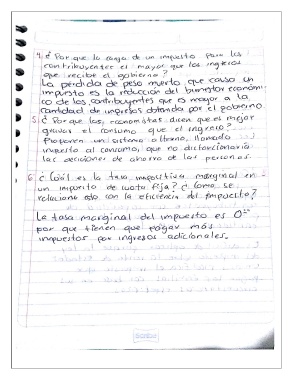 4. ¿Por que la carga de un impuesto para los
contribuyentes el mayor que los ingresos
que recibe el gobierno?
La pérdida de peso muerto que causa un
impuesto es la reducción del bienestar económi-
co de los contribuyentes que es mayor a la
cantidad de ingresos obtenida por el gobierno
5. ¿Por que los economistas dicen que es mejor
gravar el consumo que el ingreso?
Proponen un sistema alterno, llamado
impuesto al consumo, que no distorsionaria
las decisiones de ahorro de las personas.
6. ¿Cuál es la tasa impositiva marginal en
un impuesto de cuota fija? ¿Como se
relaciona esto con la eficiencia del impuesto?
La tasa marginal del impuesto es 0
por que tienen que pagar más
impuestos por ingresos adicionales.